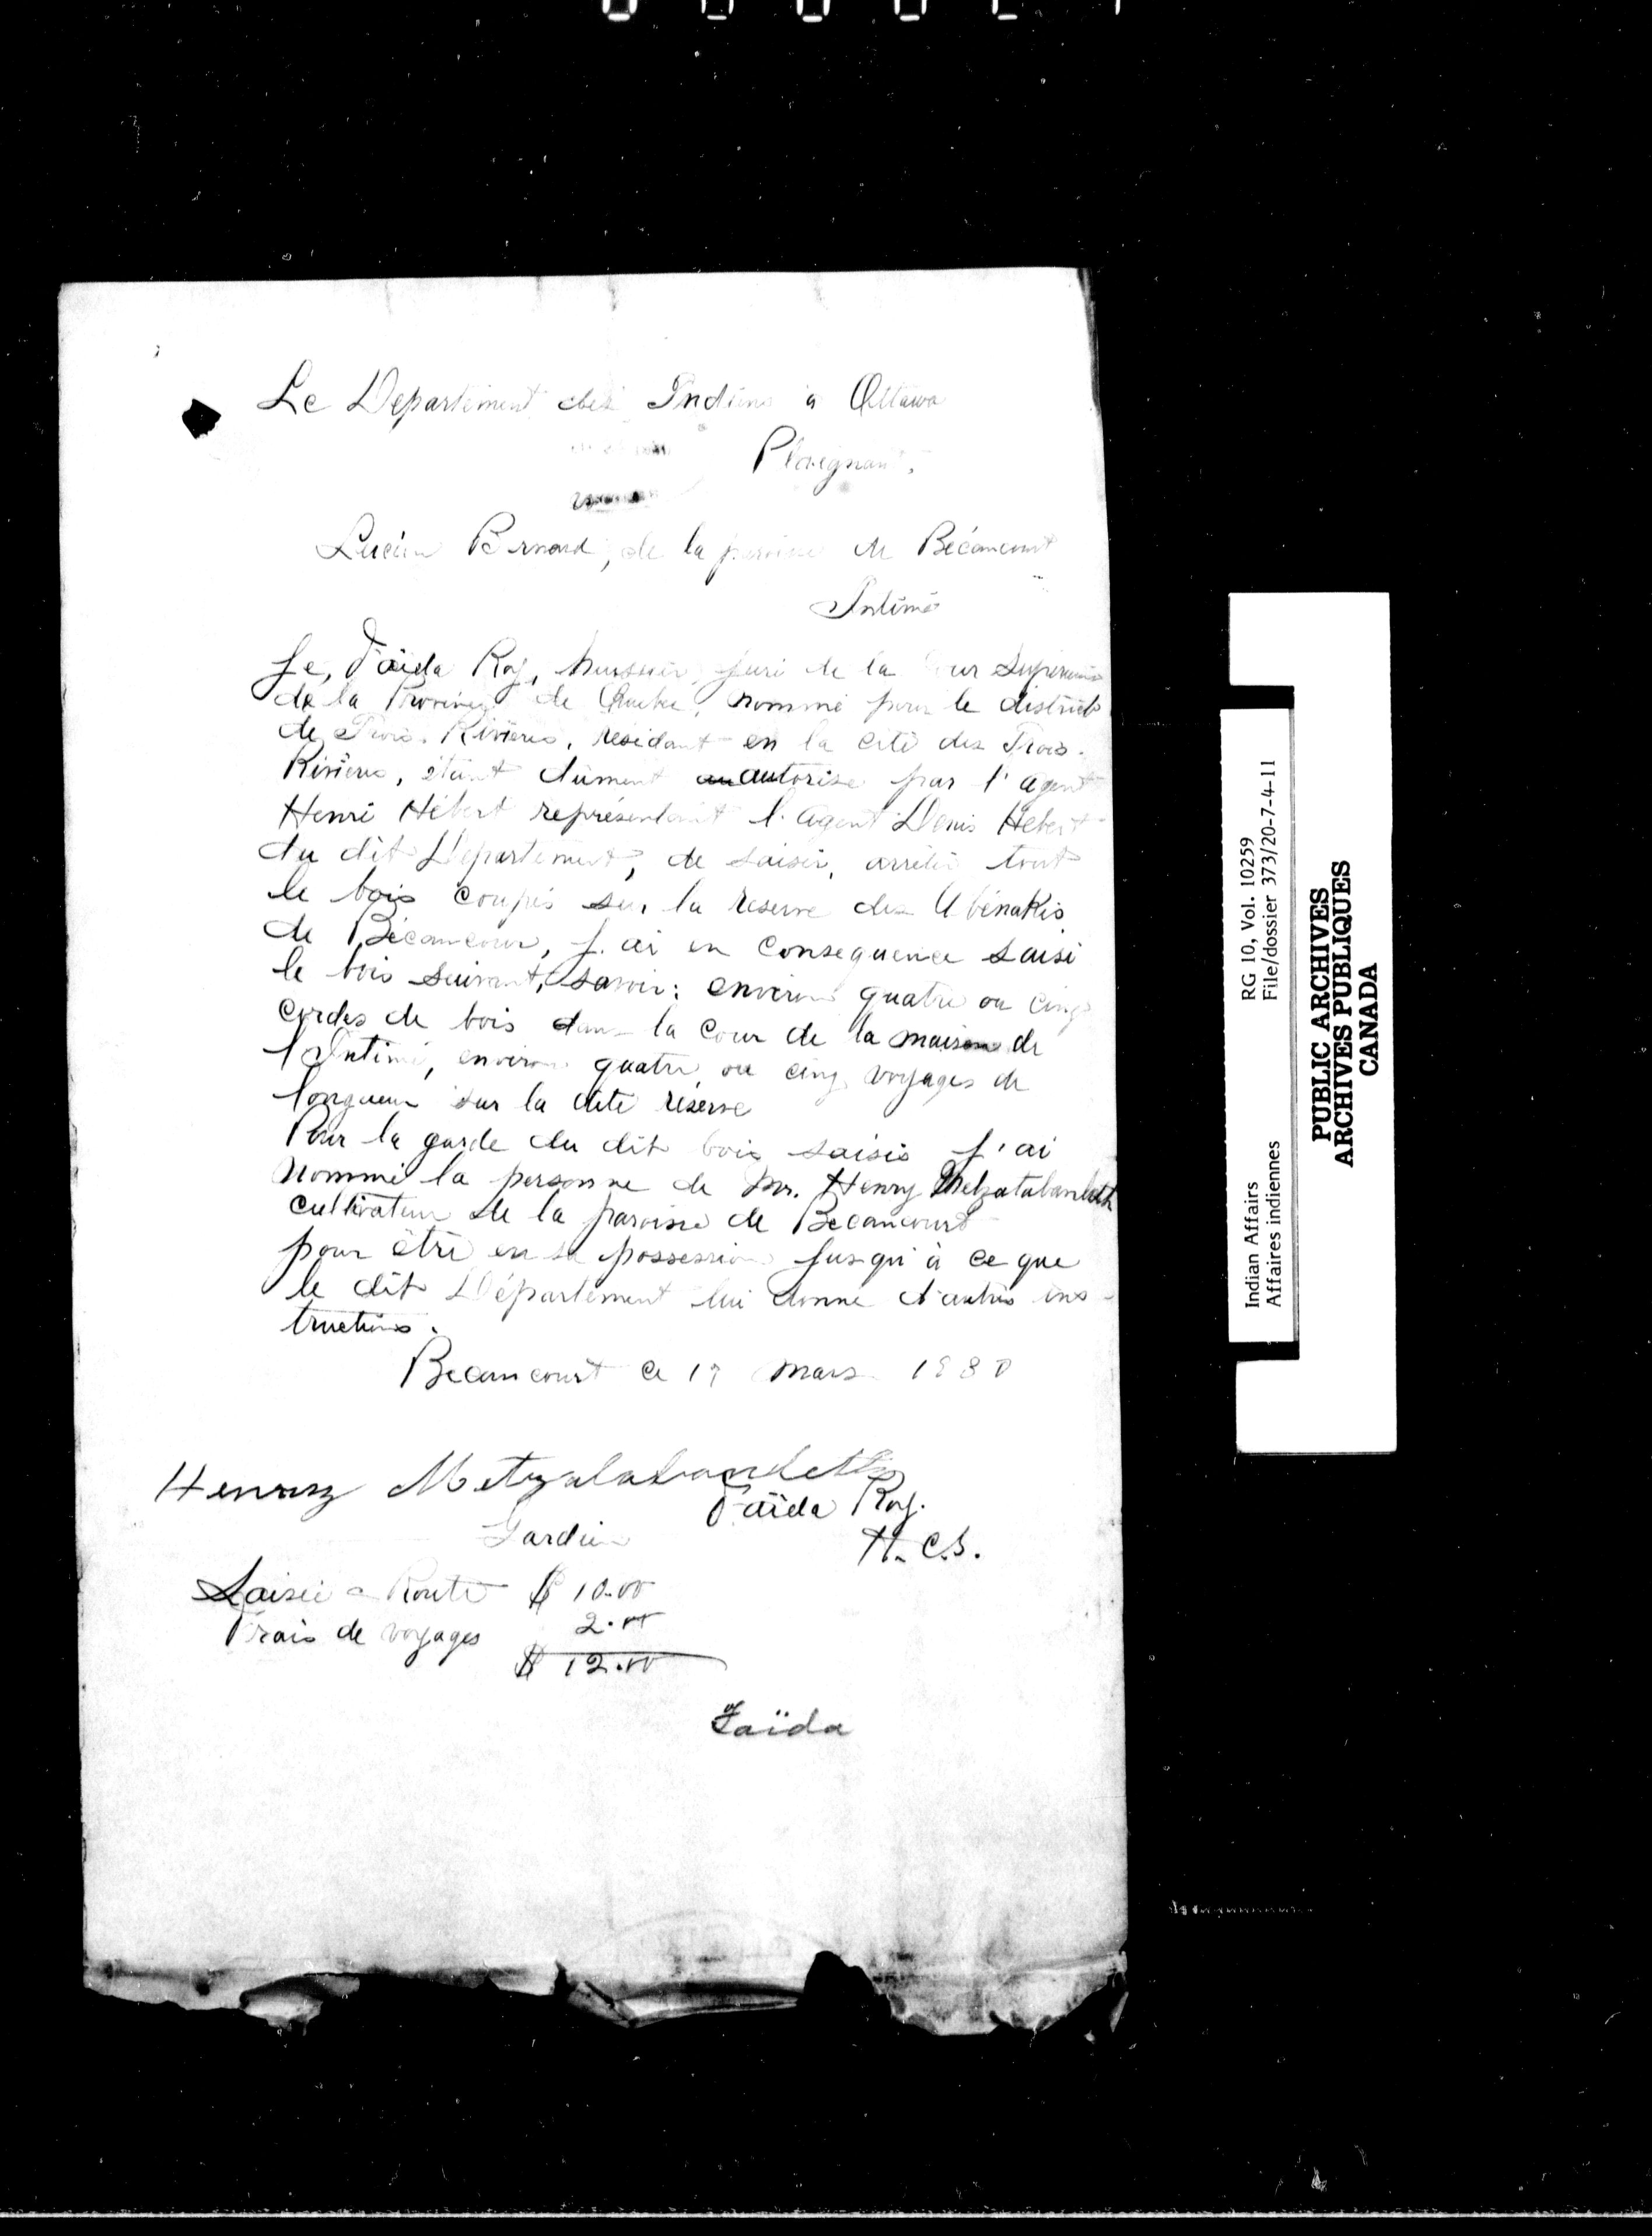 Le Departement des Indiens à Ottawa
Plaignant,
vs
Lucien Bernard, de la paroisse de Bécancourt
Intimé
Je, Zaïda Roy, huissier juré de la Cour Superieure
de la Province de Quebec, nommé pour le district
de Trois-Rivières, résidant en la cité des Trois-
Rivières, étant dûment autorisé par l'agent
Henri Hébert représentant l'agent Denis Hébert
du dit Departement, de saisir, arrêter tout
le bois coupés sur la reserve des Abénakis
de Bécancour, j'ai en consequence saisi
le bois suivant, savoir: environ quatre ou cinq
cordes de bois dans la cour de la maison de
l'Intimé, environ quatre ou cinq voyages de
longueur sur la dite réserve
Pour la garde du dit bois saisis j'ai
nommé la personne de Mr. Henry
cultivateur de la paroisse de Becancourt
pour être en sa possession jusqu'à ce que
le dit Département lui donne d'autres ins-
tructions.
Becancourt ce mars
Henry Metzalabandeth
Zaïda Roy.
Gardien
H.C.S.
Saisie Route $ 10.00
Frais de voyages 2.00
$ 12.00
Zaïda
Indian Affairs RG 10, Vol. 10259
Affaires indiennes File/dossier 373/20-7-4-11
PUBLIC ARCHIVES
ARCHIVES PUBLIQUES
CANADA